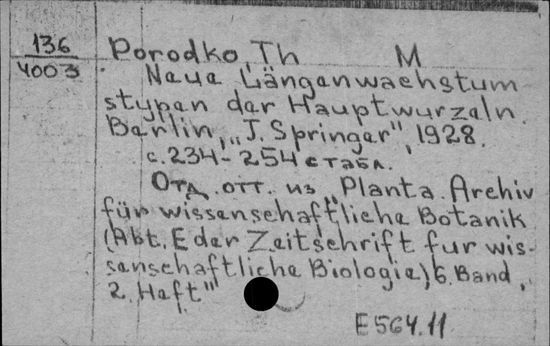 136
4003
Porodko, Th M
Neue Längenwachstum
stypen der Hauptwurzeln.
Berlin, „J. Springer", 1928.
с. 234-254 с табл.
Отд. отт. из „Planta. Archiv
für wissenschaftliche Botanik
(Abt. E der Zeitschrift fur wis-
senschaftliche Biologie) 6. Band,
2. Heft"
E564.11